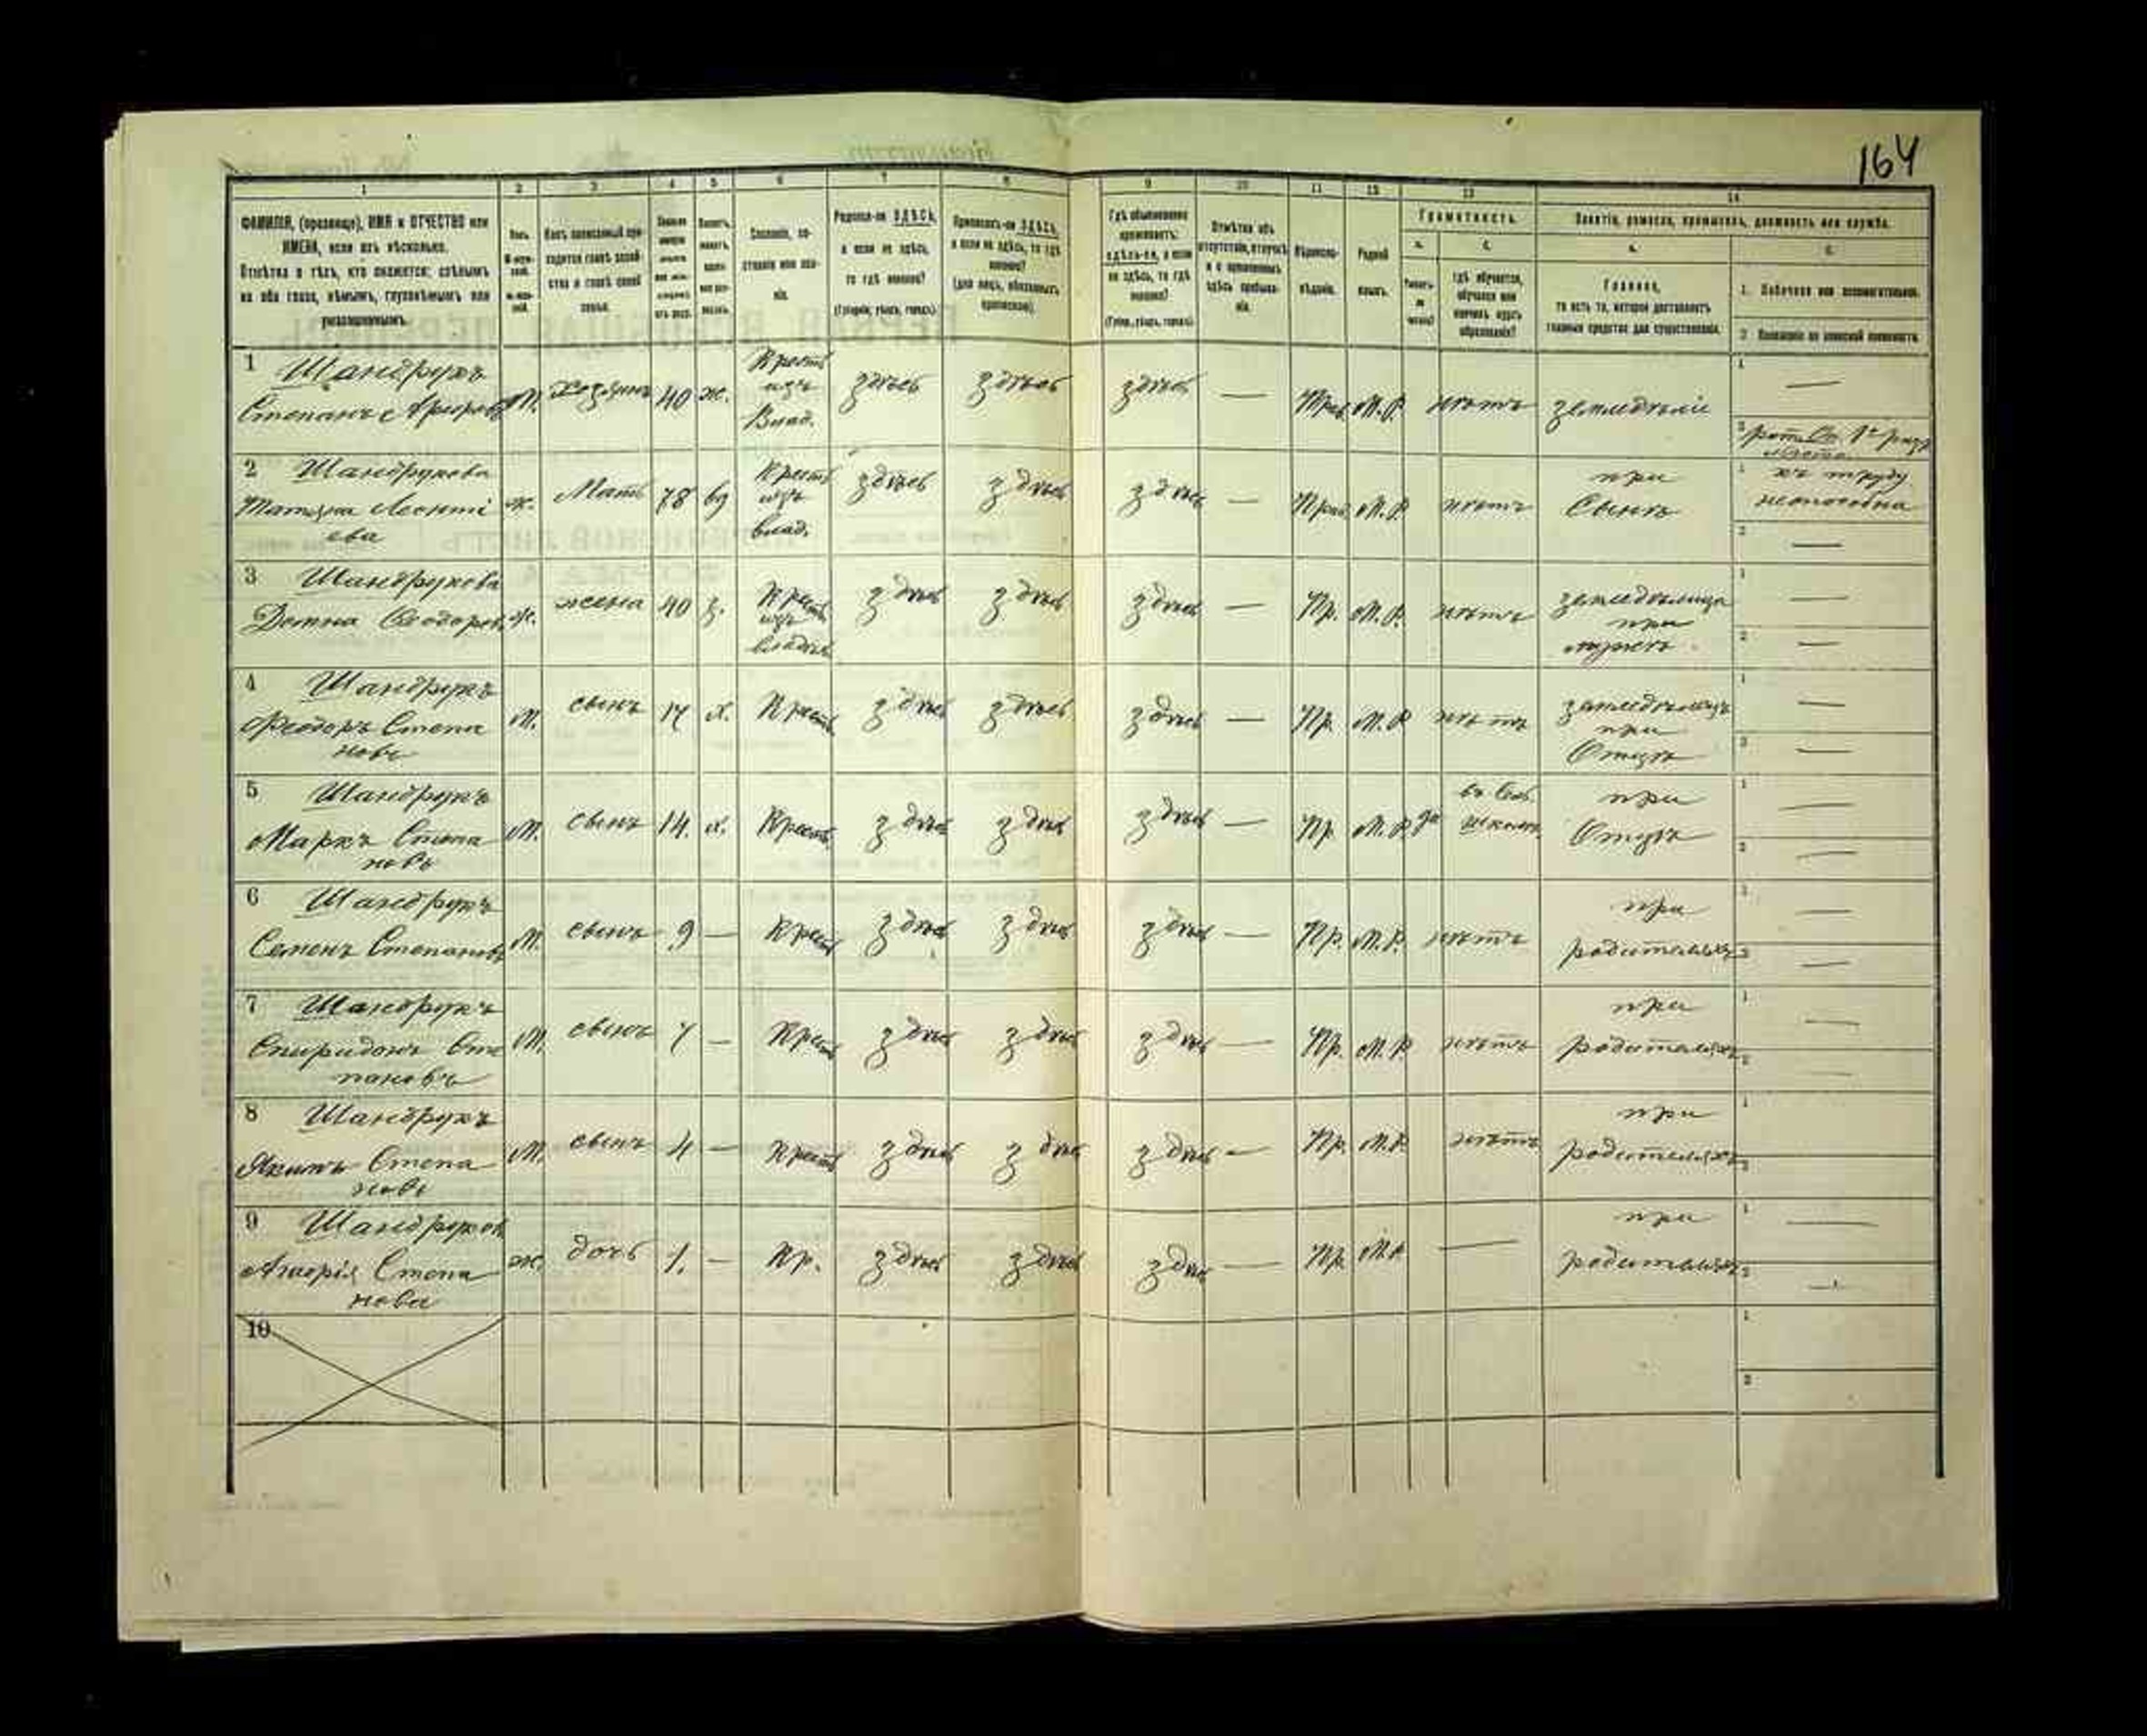 164
1 2 3 4 5 6 7 8 9 10 11 12 13 14
ФАМИЛІЯ, (прозвище), ИМЯ и ОТЧЕСТВО или
ИМЕНА, если ихъ нѣсколько.
Отмѣтка о тѣхъ, кто окажется: слѣпымъ
на оба глаза, нѣмымъ, глухонѣмымъ или
умалишеннымъ.
Родился-ли ЗДѢСЬ,
а если не здѣсь,
то гдѣ именно?
(Губернія, уѣздъ, городъ).
Приписанъ-ли ЗДѢСЬ,
а если не здѣсь, то гдѣ
именно?
(для лицъ, обязанныхъ
припискою).
Гдѣ обыкновенно
проживаетъ:
здѣсь-ли, а если
не здѣсь, то гдѣ
именно?
(Губ., уѣздъ, городъ).
Отмѣтка объ
отсутствіи, отлучкѣ
и о временномъ
здѣсь пребыва-
ніи.
Вѣроиспо-
вѣданіе.
Родной
языкъ.
Грамотность.
а. б.
Гдѣ обучается,
обучался или
кончилъ курсъ
образованія?
Занятіе, ремесло, промыселъ, должность или служба.
а. б.
Главное,
то есть то, которое доставляетъ
главныя средства для существованія.
1. Побочное или вспомогательное.
2. Положеніе по воинской повинности.
1 Шандрукъ
Степанъ
М. хозяинъ 40 ж. Крест. изъ Влад. здѣсь здѣсь здѣсь — Прав. М.Р. нѣтъ земледѣліе
1 —
2
2 Шандрукова
Татяна Леонтi
ева
ж. Мать 78 вд Крест. изъ влад. здѣсь здѣсь здѣсь — Прав. М.Р. нѣтъ при Сынѣ
1 къ труду
неспособна
2 —
3 Шандрукова
Домна Феодоров.
ж. жена 40 з. Крест. изъ здѣсь здѣсь здѣсь — Пр. М.Р. нѣтъ земледѣлица при мужѣ
1 —
2 —
4 Шандрукъ
Феодоръ Степа
новъ
М. сынъ 17 х. Крест. здѣсь здѣсь здѣсь — Пр. М.Р. нѣтъ при Отцѣ
1 —
2 —
5 Шандрукъ
Маркъ Степа
новъ
М. сынъ 14. х. Крест. здѣсь здѣсь здѣсь — Пр. М.Р. да школѣ при Отцѣ
1 —
2 —
6 Шандрукъ
Семенъ Степановъ
М. сынъ 9 — Крест. здѣсь здѣсь здѣсь — Пр. М.Р. нѣтъ при родителяхъ
1 —
2 —
7 Шандрукъ
Спиридонъ Сте
пановъ
М. сынъ 7 — Крест. здѣсь здѣсь здѣсь — Пр. М.Р. нѣтъ при родителяхъ
1 —
2 —
8 Шандрукъ
Якимъ Степа
новъ
М. сынъ 4 — Крест. здѣсь здѣсь здѣсь — Пр. М.Р. нѣтъ при родителяхъ
1
2
9 Шандруков
Степа
нова
ж. дочь 1. — Кр. здѣсь здѣсь здѣсь — Пр. М.Р. — при родителяхъ
1 —
2 —
10
1
2